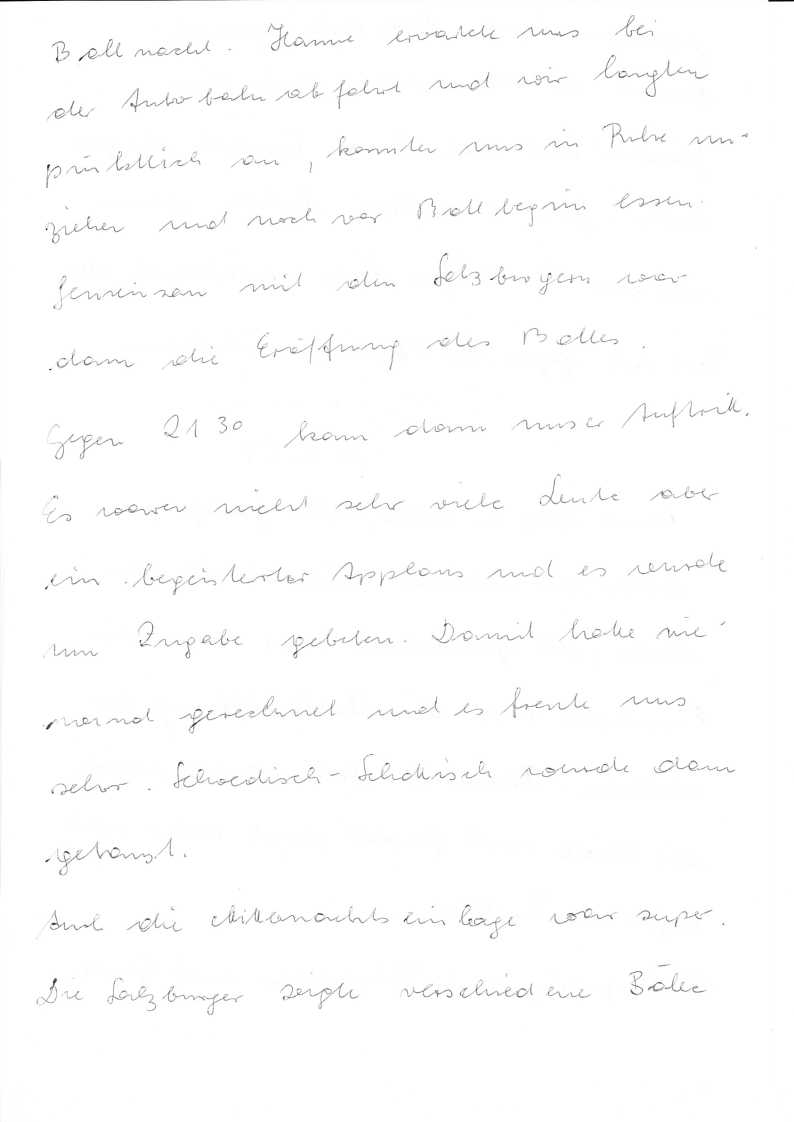 Ballnacht. Hanne erwartete uns bei
der Autobahnabfahrt und wir langten
pünktlich an, konnten uns in Ruhe um-
ziehen und noch vor Ballbeginn essen.
Gemeinsam mit den Salzburgern war
dann die Eröffnung des Balles.
Gegen 21 30 kam dann unser Auftritt.
Es waren nicht sehr viele Leute aber
ein begeisterter Applaus und es wurde
um Zugabe gebeten. Damit hatte nie-
mand gerechnet und es freute uns
sehr. Schwedisch-Schottisch wurde dann
getanzt.
Auch die Mitternachtseinlage war super.
Die Salzburger zeigte verschiedene Bälle